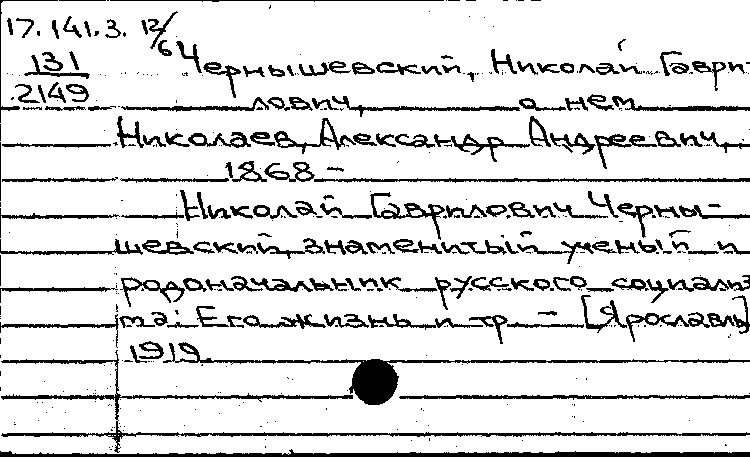 17.141.3. 12/6
131
2149
Чернышевский, Николай Гаври-
лович, о нем
Николаев, Александр Андреевич,
1868 -
Николай Гаврилович Черны-
шевский, знаменитый ученый и
родоначальник русского социализ
ма: Его жизнь и тр. - [Ярославль]
1919.